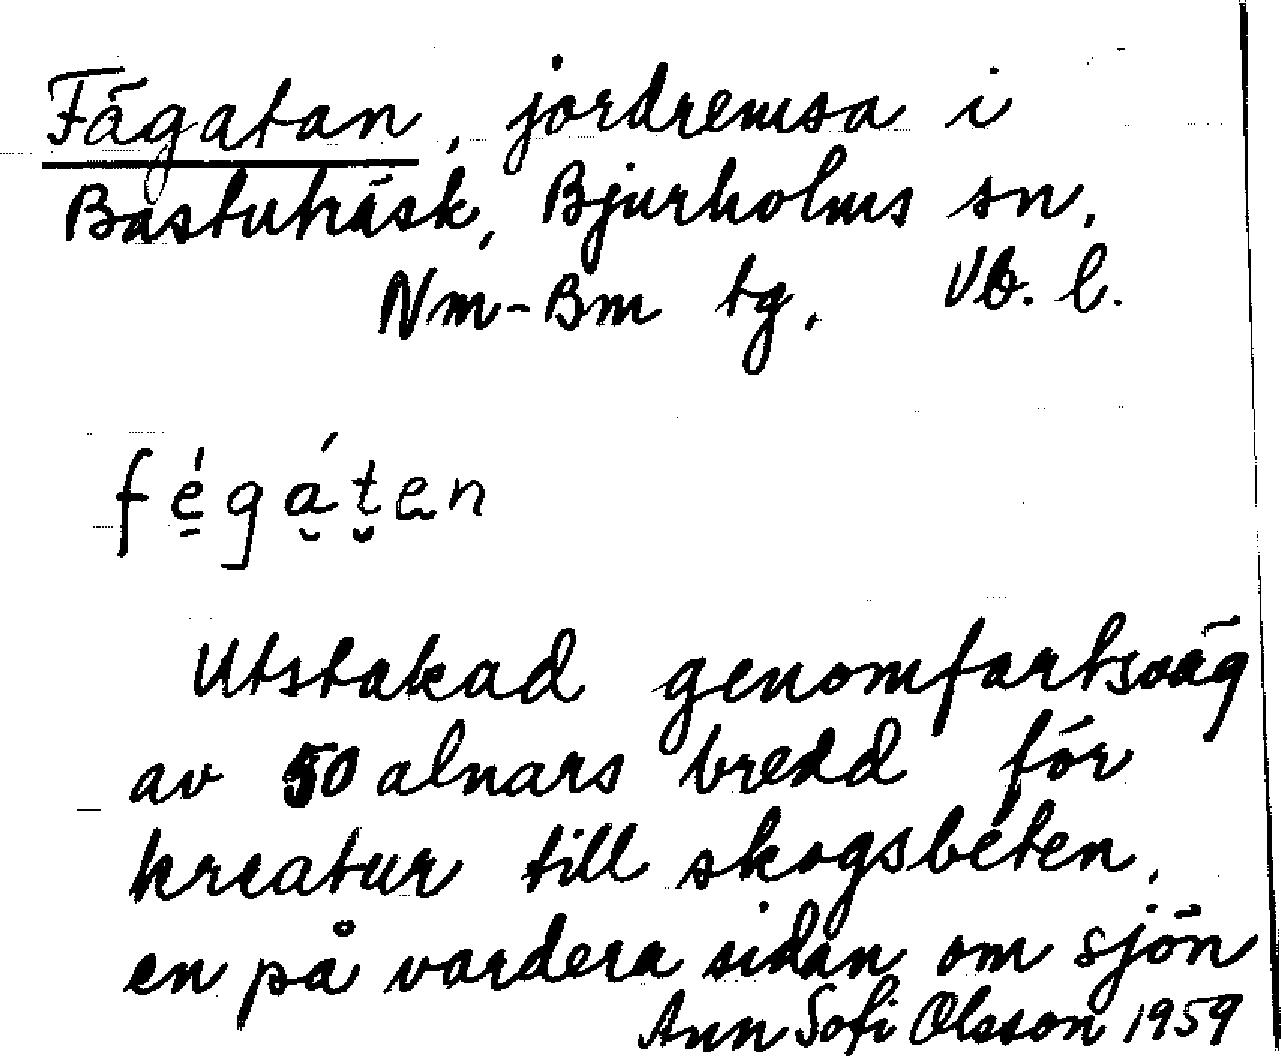 Fägatan, jordremsa i
Bastuträsk, Bjurholms sn.
Nm-Bm tg. Vb. l.
fé̳gá̮t̮en
Utstakad genomfartsväg
av 50 alnars bredd för
kreatur till skogsbeten,
en på vardera sidan om sjön
Ann Sofi Olsson 1959